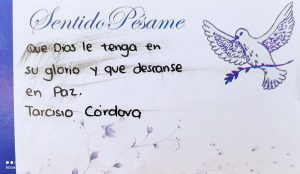 Sentido Pésame
Que Dios le tenga en
su gloria y que descanse
en Paz.
Tarcisio Córdova